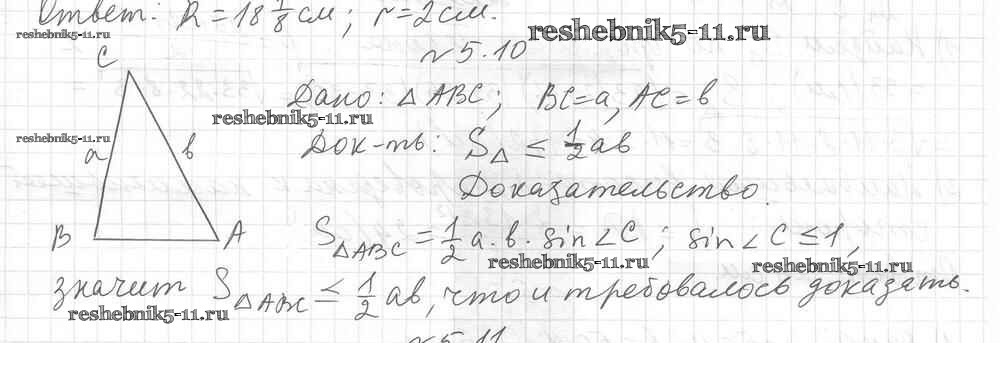 Ответ: R = 18 1/8 см; r = 2 см.
reshebnik5-11.ru
reshebnik5-11.ru
№5.10
C
Дано: △ABC; BC=a, AC=b
reshebnik5-11.ru
reshebnik5-11.ru
Док-ть: S△ ≤ 1/2 ab
a
b
Доказательство.
B
A
S△ABC = 1/2 a·b·sin∠C; sin∠C ≤ 1,
reshebnik5-11.ru
reshebnik5-11.ru
значит S△ABC ≤ 1/2 ab, что и требовалось доказать.
reshebnik5-11.ru
№5.11